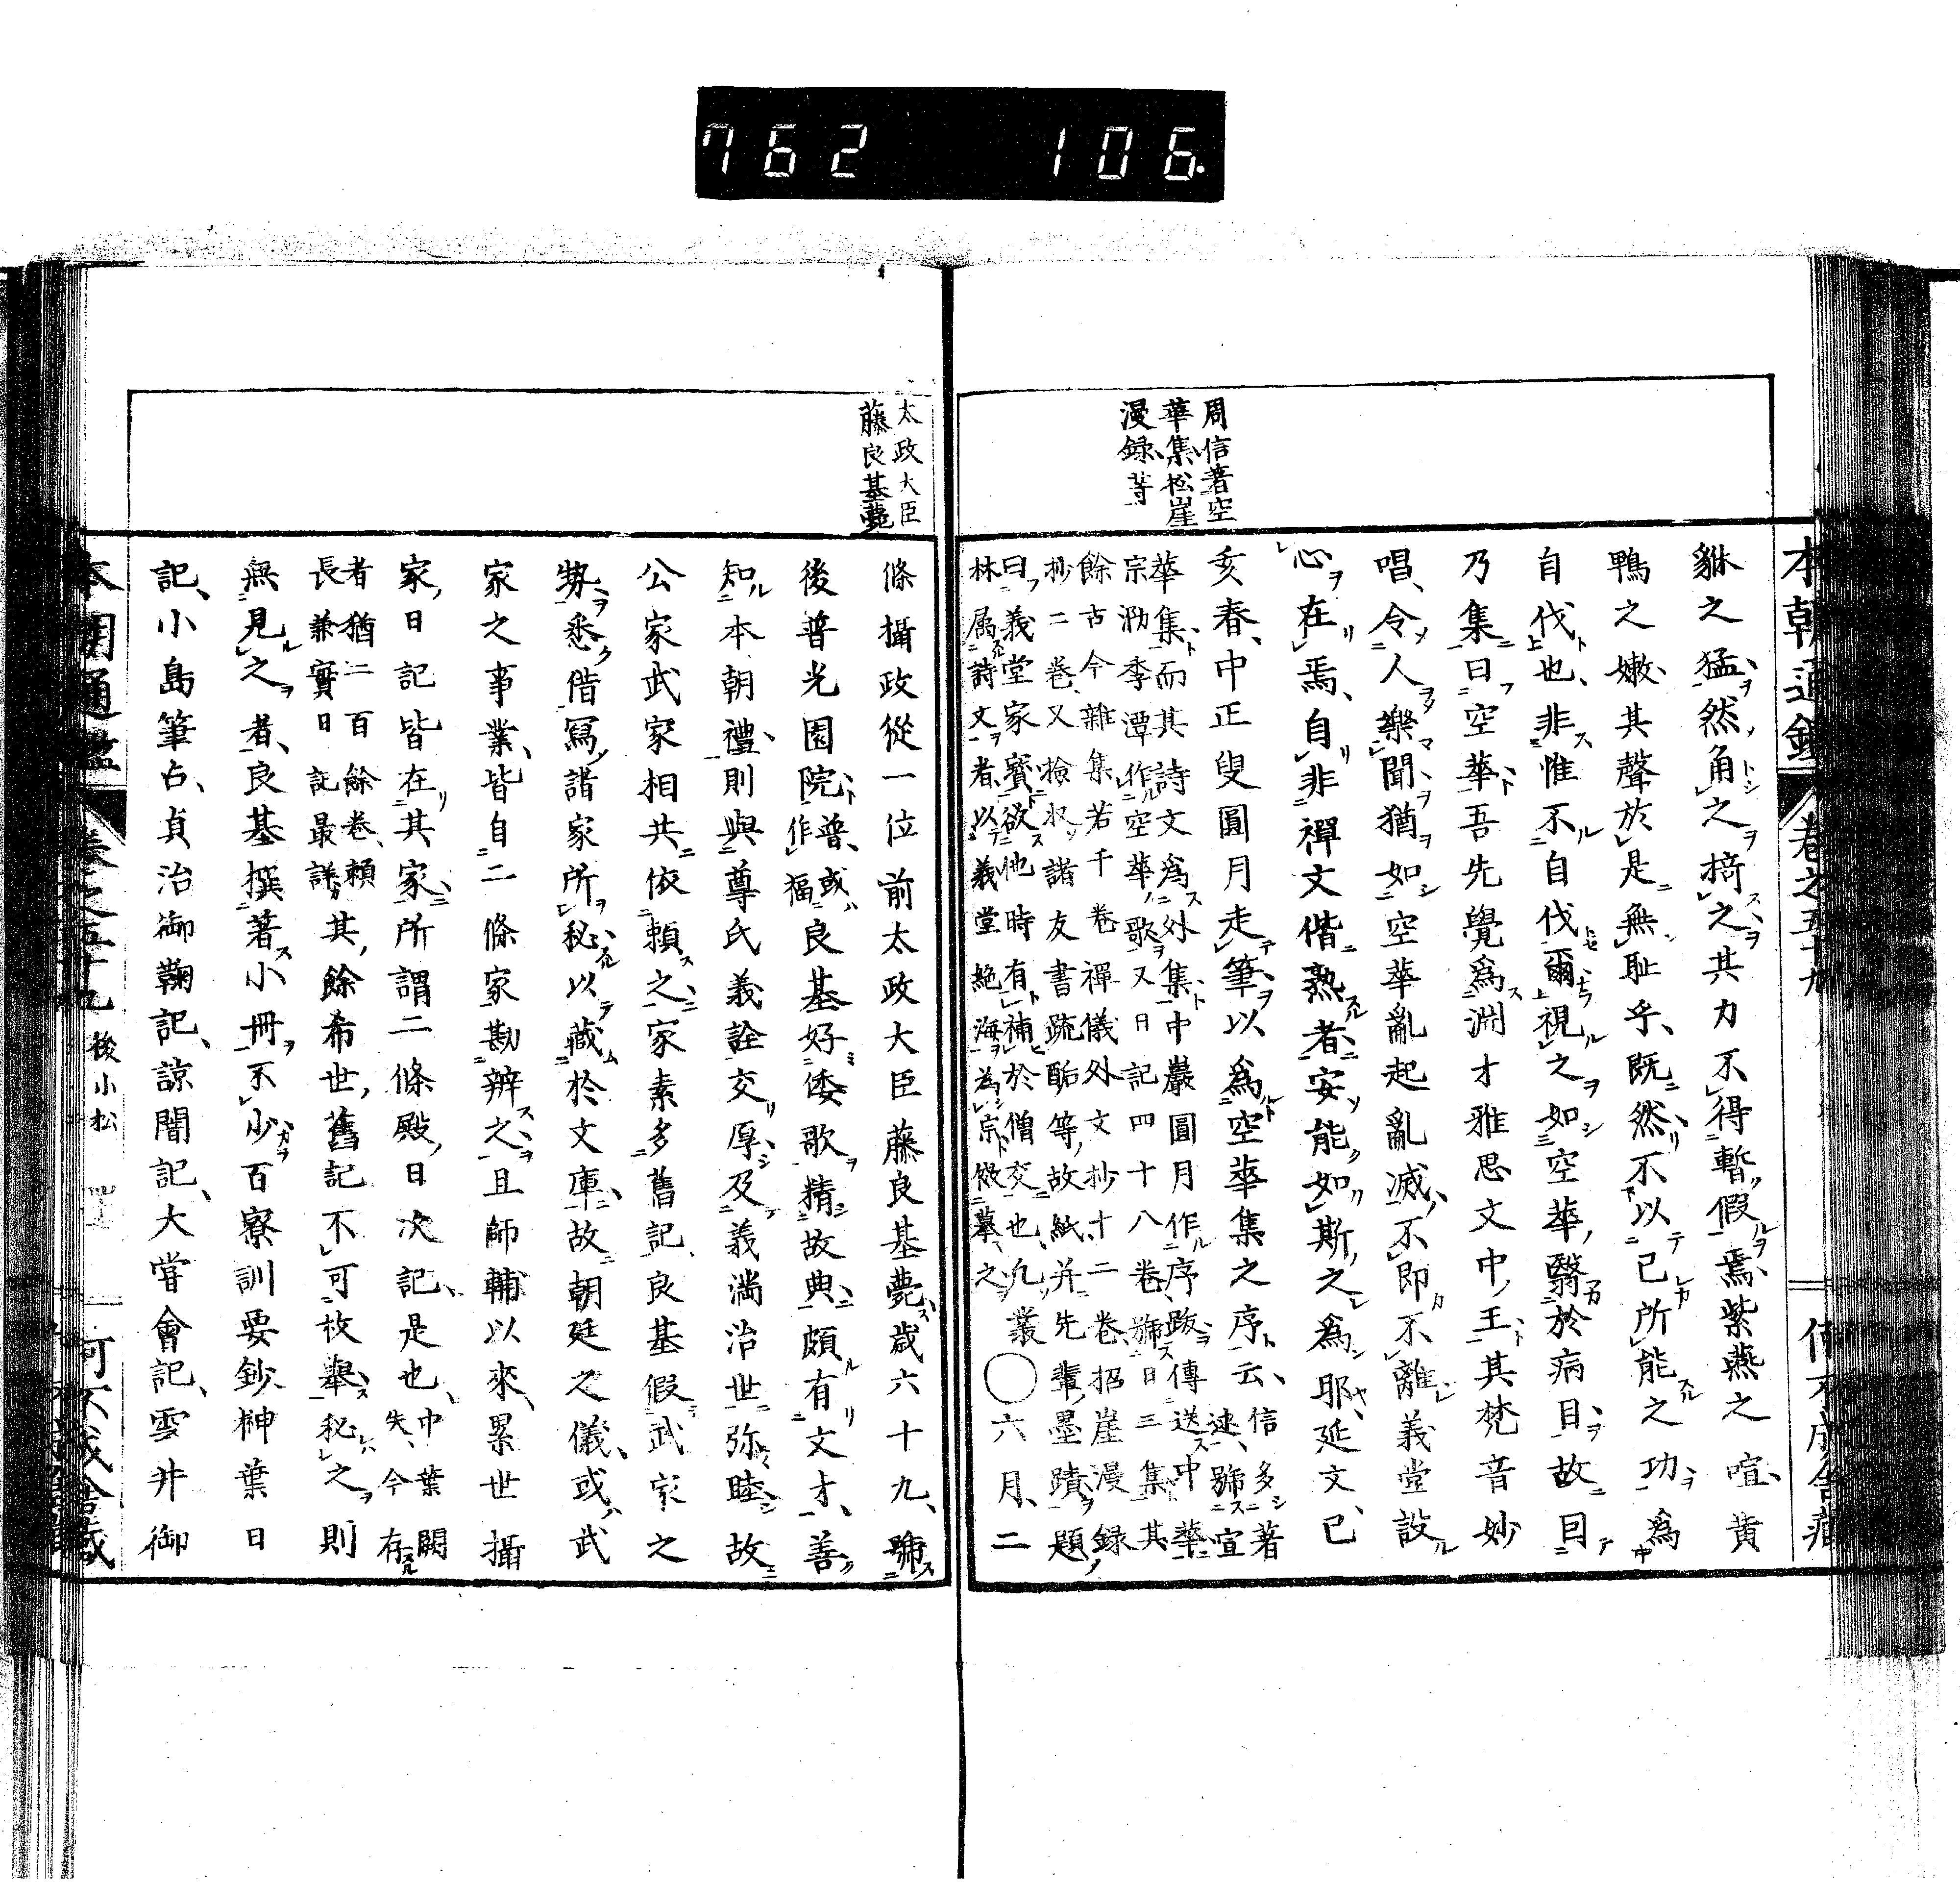 762 106.
周信著空
華集松崖
漫録等
貅之猛然角之掎之其力不得暫假焉紫燕之喧黄
鴨之嫩其聲於是無恥乎既然不以已所能之功為
自伐也非惟不自伐爾視之如空華翳於病目故目
乃集曰空華吾先覺為淵才雅思文中王其梵音妙
唱令人樂聞猶如空華亂起亂滅不即不離義堂設
心在焉自非禪文偕熟者安能如斯之為耶延文已
亥春中正叟圓月走筆以為空華集之序云信多著
述號宣
華集而其詩文為外集中巖圓月作序跋傳送中華
宗泐季潭作空華歌又日記四十八卷號日三集其
餘古今雜集若千卷禪儀外文抄十二卷招崖漫録
抄二卷又撿收諸友書疏酩等故紙并先輩墨蹟題
曰義堂家寶欲他時有補於僧交也凡叢
林属詩文者以義堂絶海為宗做摹之
○六月二
太政大臣
藤良基薨
條攝政從一位前太政大臣藤良基薨歳六十九號
後普光園院普或作福良基好倭歌精故典頗有文才善
知本朝禮則與尊氏義詮交厚及義満治世弥睦故
公家武家相共依頼之家素多舊記良基假武家之
勢悉借寫諸家所秘以藏於文庫故朝廷之儀或武
家之事業皆自二條家勘辨之且師輔以來累世攝
家日記皆在其家所謂二條殿日次記是也中葉闕
失今存
者猶二百餘卷頼
長兼實日記最詳其餘希世舊記不可枚舉秘之則
無見之者良基撰著小冊不少百寮訓要鈔榊葉日
記小島筆占貞治御鞠記諒闇記大嘗會記雲井御
本朝通鑑 卷之五十九 後小松